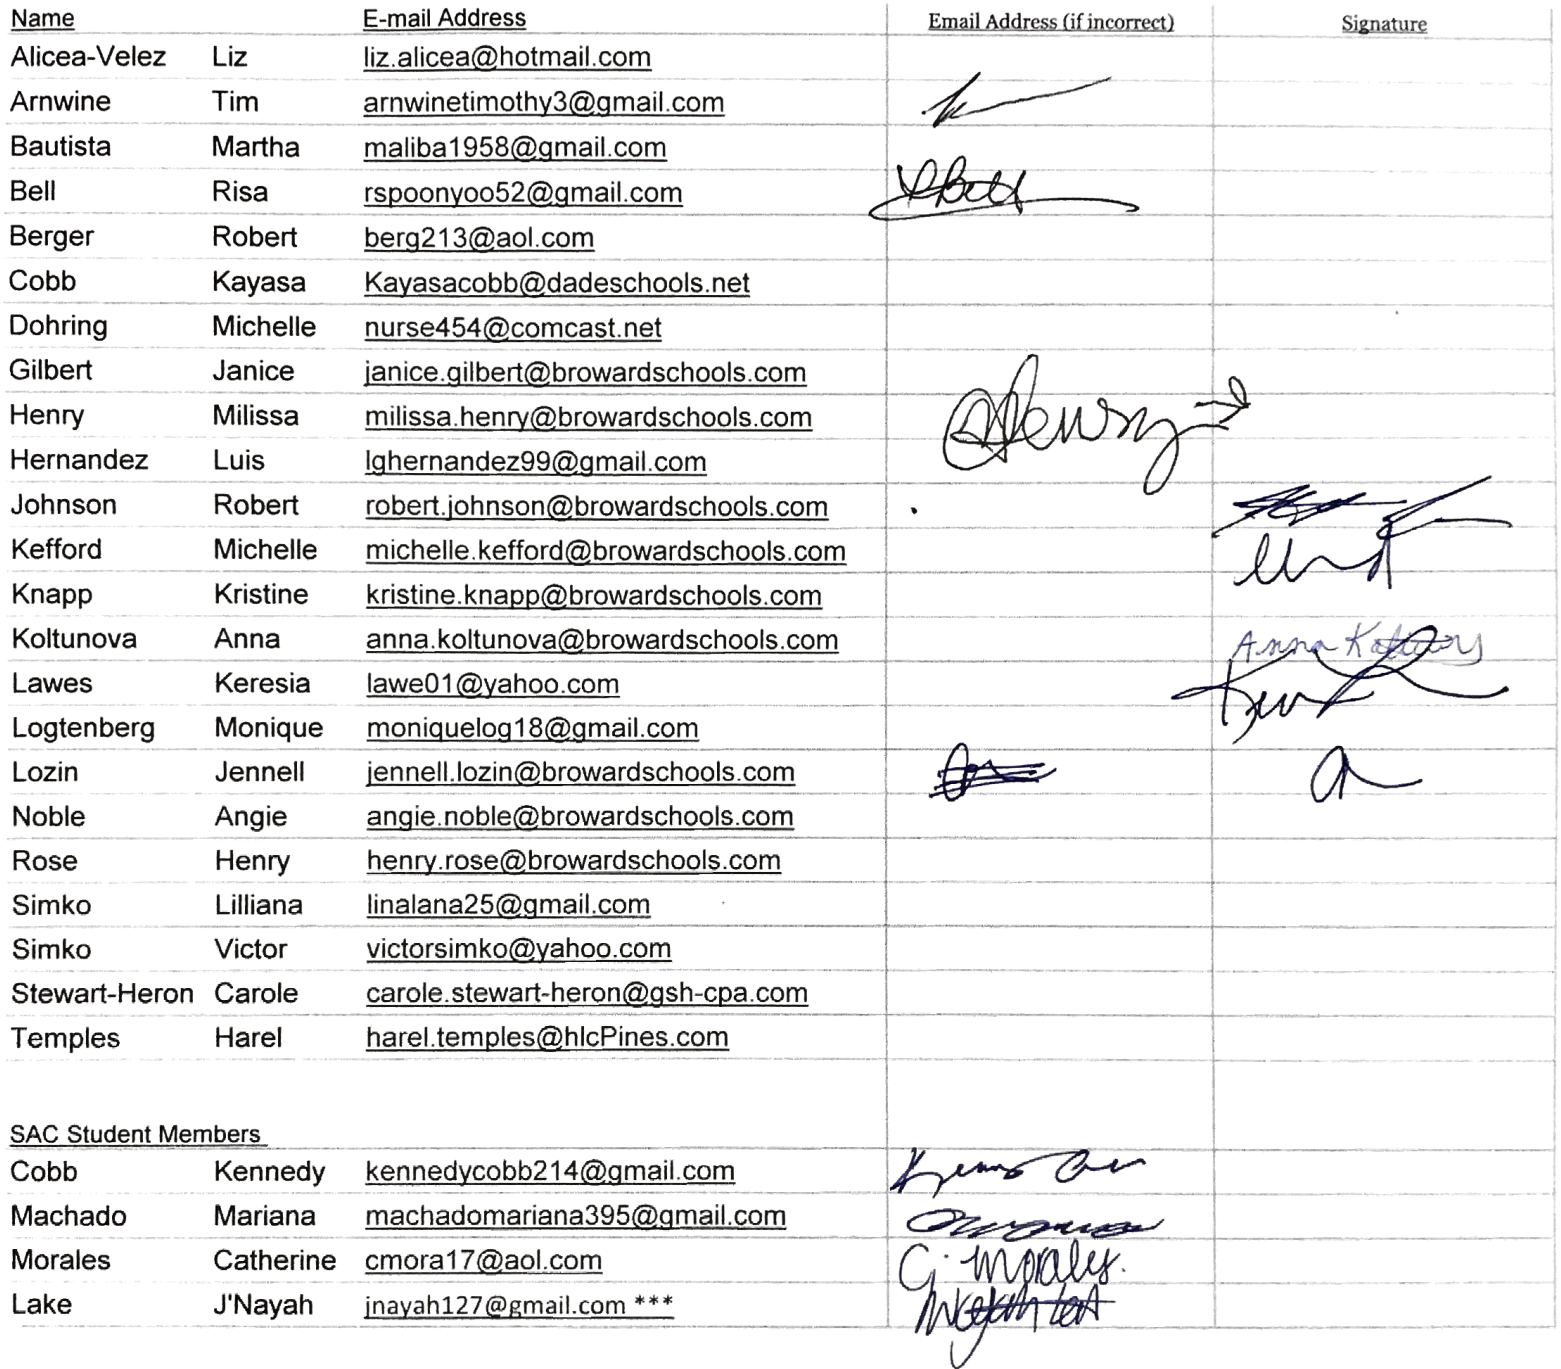 Name E-mail Address Email Address (if incorrect) Signature
Alicea-Velez Liz liz.alicea@hotmail.com
Arnwine Tim arnwinetimothy3@gmail.com
Bautista Martha maliba1958@gmail.com
Bell Risa rspoonyoo52@gmail.com RBell
Berger Robert berg213@aol.com
Cobb Kayasa Kayasacobb@dadeschools.net
Dohring Michelle nurse454@comcast.net
Gilbert Janice janice.gilbert@browardschools.com
Henry Milissa milissa.henry@browardschools.com Henry
Hernandez Luis lghernandez99@gmail.com
Johnson Robert robert.johnson@browardschools.com
Kefford Michelle michelle.kefford@browardschools.com
Knapp Kristine kristine.knapp@browardschools.com
Koltunova Anna anna.koltunova@browardschools.com Anna
Lawes Keresia lawe01@yahoo.com
Logtenberg Monique moniquelog18@gmail.com
Lozin Jennell jennell.lozin@browardschools.com
Noble Angie angie.noble@browardschools.com
Rose Henry henry.rose@browardschools.com
Simko Lilliana linalana25@gmail.com
Simko Victor victorsimko@yahoo.com
Stewart-Heron Carole carole.stewart-heron@gsh-cpa.com
Temples Harel harel.temples@hlcPines.com
SAC Student Members
Cobb Kennedy kennedycobb214@gmail.com
Machado Mariana machadomariana395@gmail.com
Morales Catherine cmora17@aol.com C. Morales.
Lake J'Nayah jnayah127@gmail.com ***